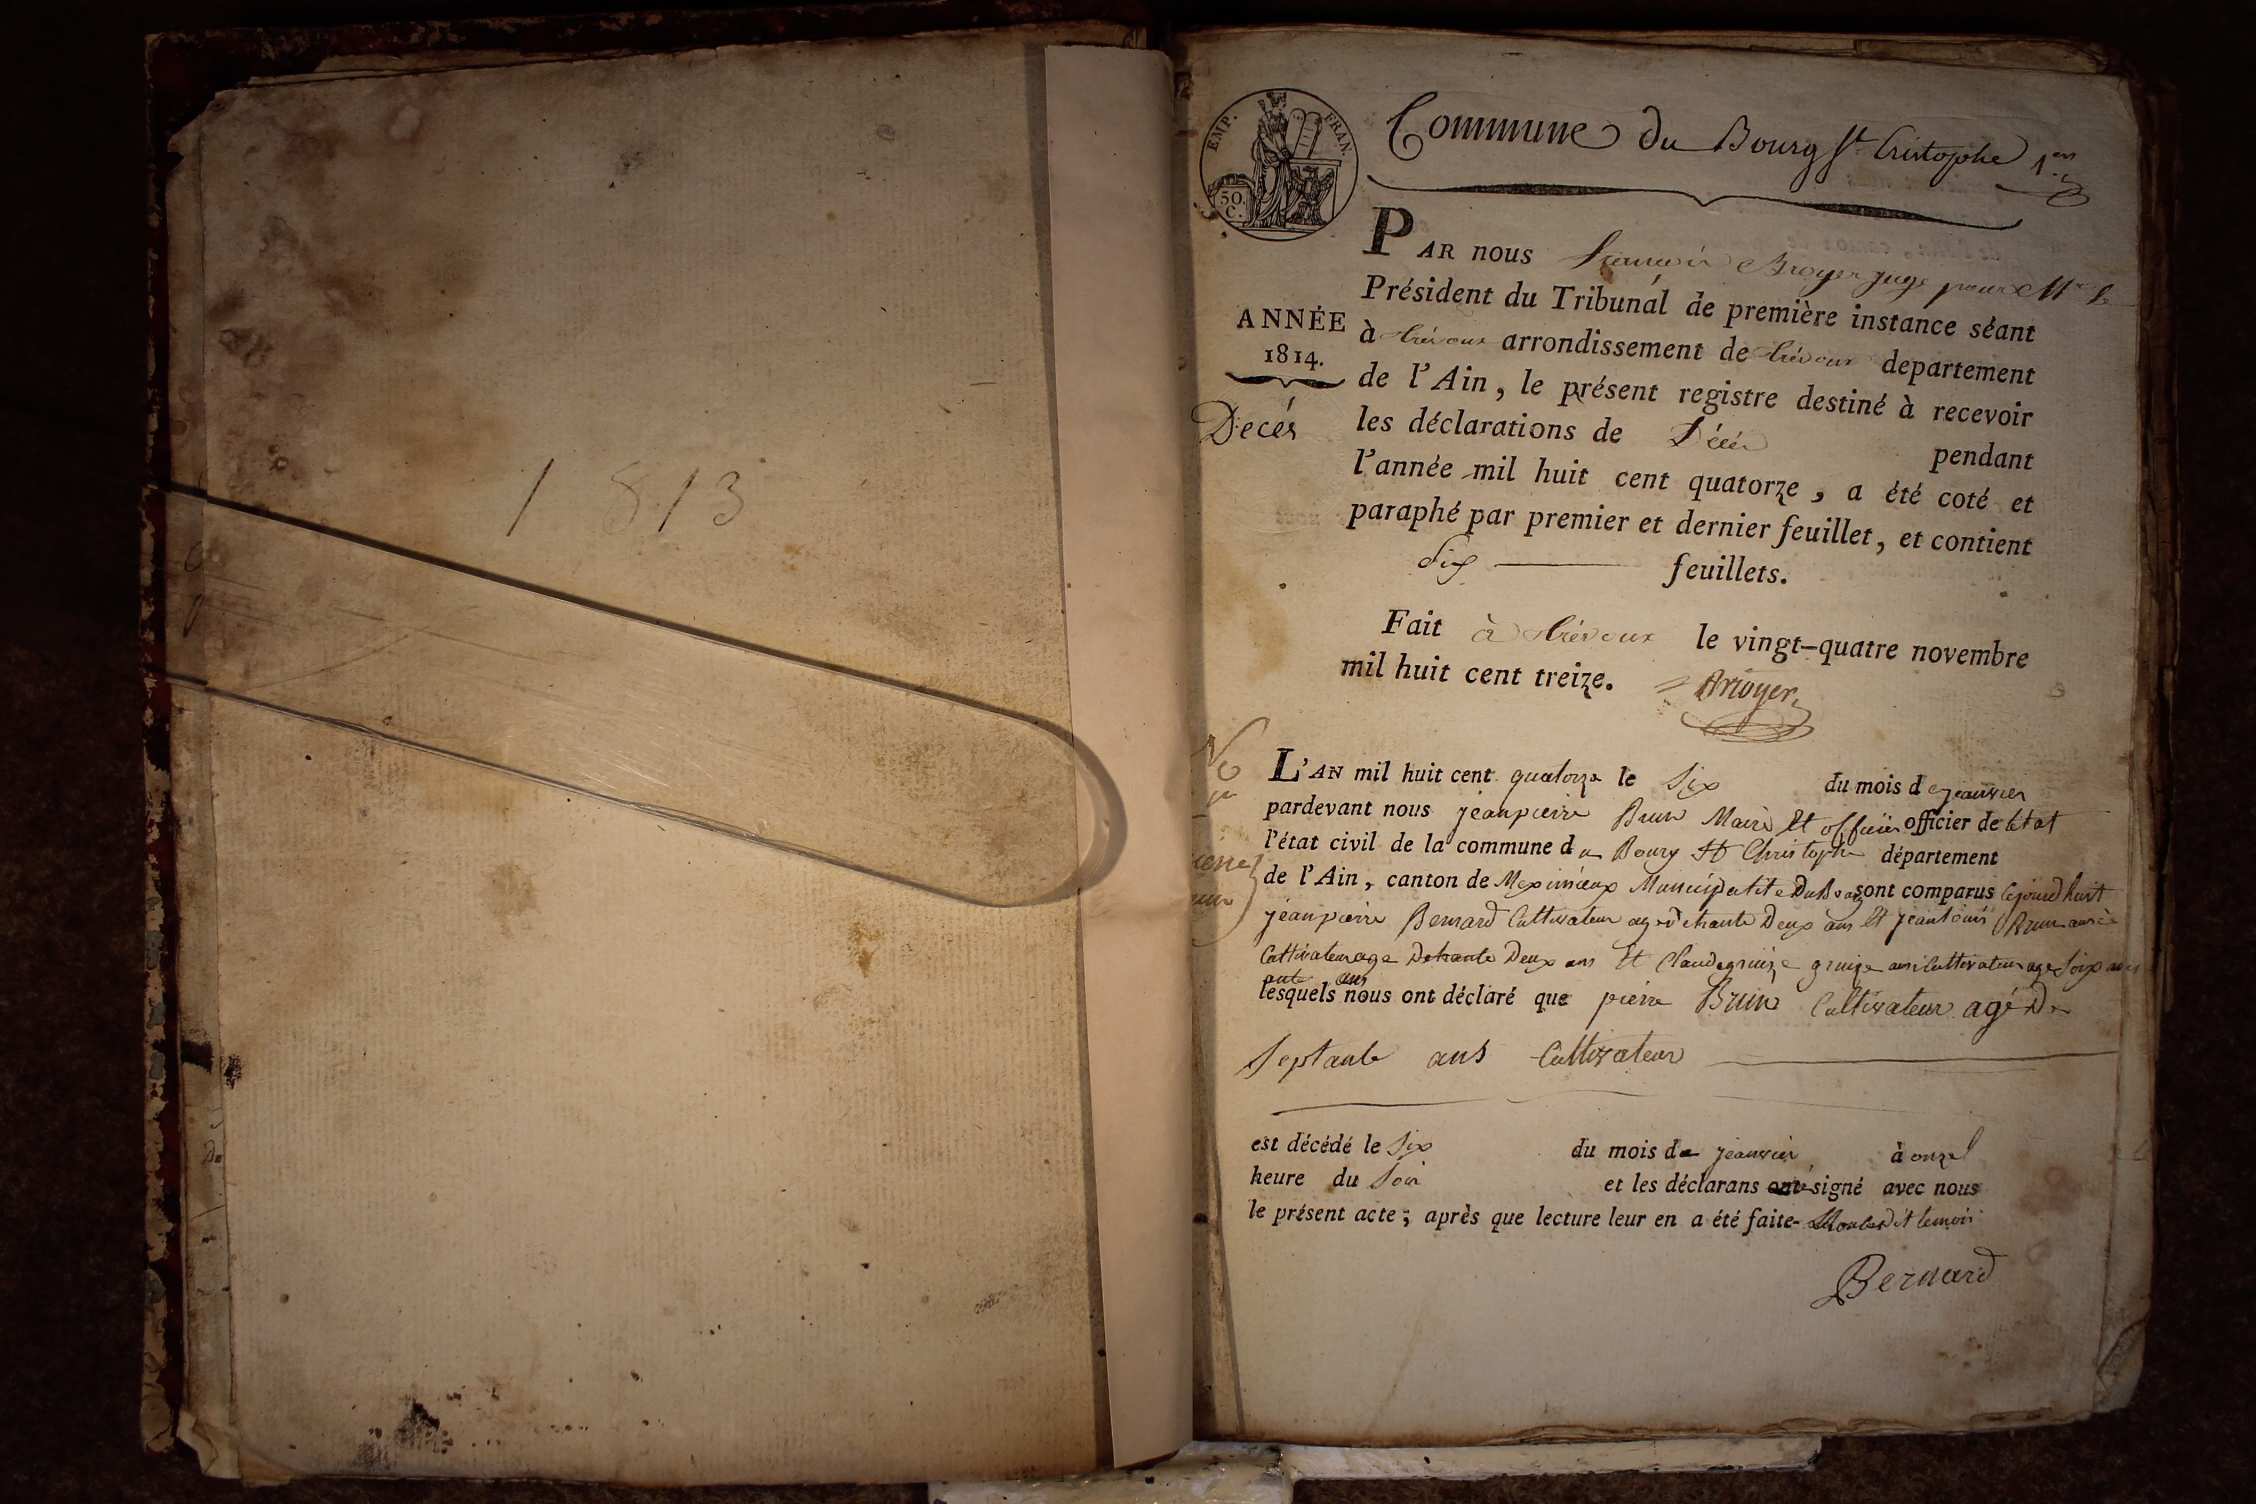 1813
EMP. FRAN.
50.
C.
Commune du Bourg St Cristophe 1er
PAR nous François Broyer juge pour Mr le
Président du Tribunal de première instance séant
ANNÉE
1814.
à trévoux arrondissement de trévoux departement
de l'Ain, le présent registre destiné à recevoir
Decés
les déclarations de Décés pendant
l'année mil huit cent quatorze, a été coté et
paraphé par premier et dernier feuillet, et contient
Six feuillets.
Fait à trévoux le vingt-quatre novembre
mil huit cent treize. Broyer
L'AN mil huit cent quatorze le Six du mois de jeanvier
pardevant nous jeanpierre Brun Maire Et officier officier de létat
l'état civil de la commune du Bourg St Christophe département
de l'Ain, canton de Meximieux sont comparus
jeanpierre Bernard Cultivateur age Detrante Deux ans Et jean louis Brun
Cultivateur age Detrante Deux ans Et Claude gruize Cultivateur age Soix
ante ans
lesquels nous ont déclaré que pierre Brun Cultivateur agé De
Septante ans Cultivateur
est décédé le Six du mois de jeanvier à onze
heure du Soir et les déclarans ont signé avec nous
le présent acte; après que lecture leur en a été faite
Bernard